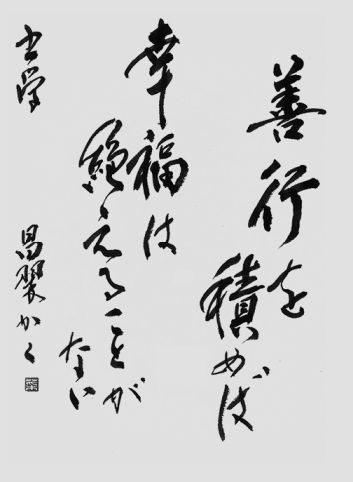 善行を
積めば
幸福は
絶えることが
ない
昌翠かく